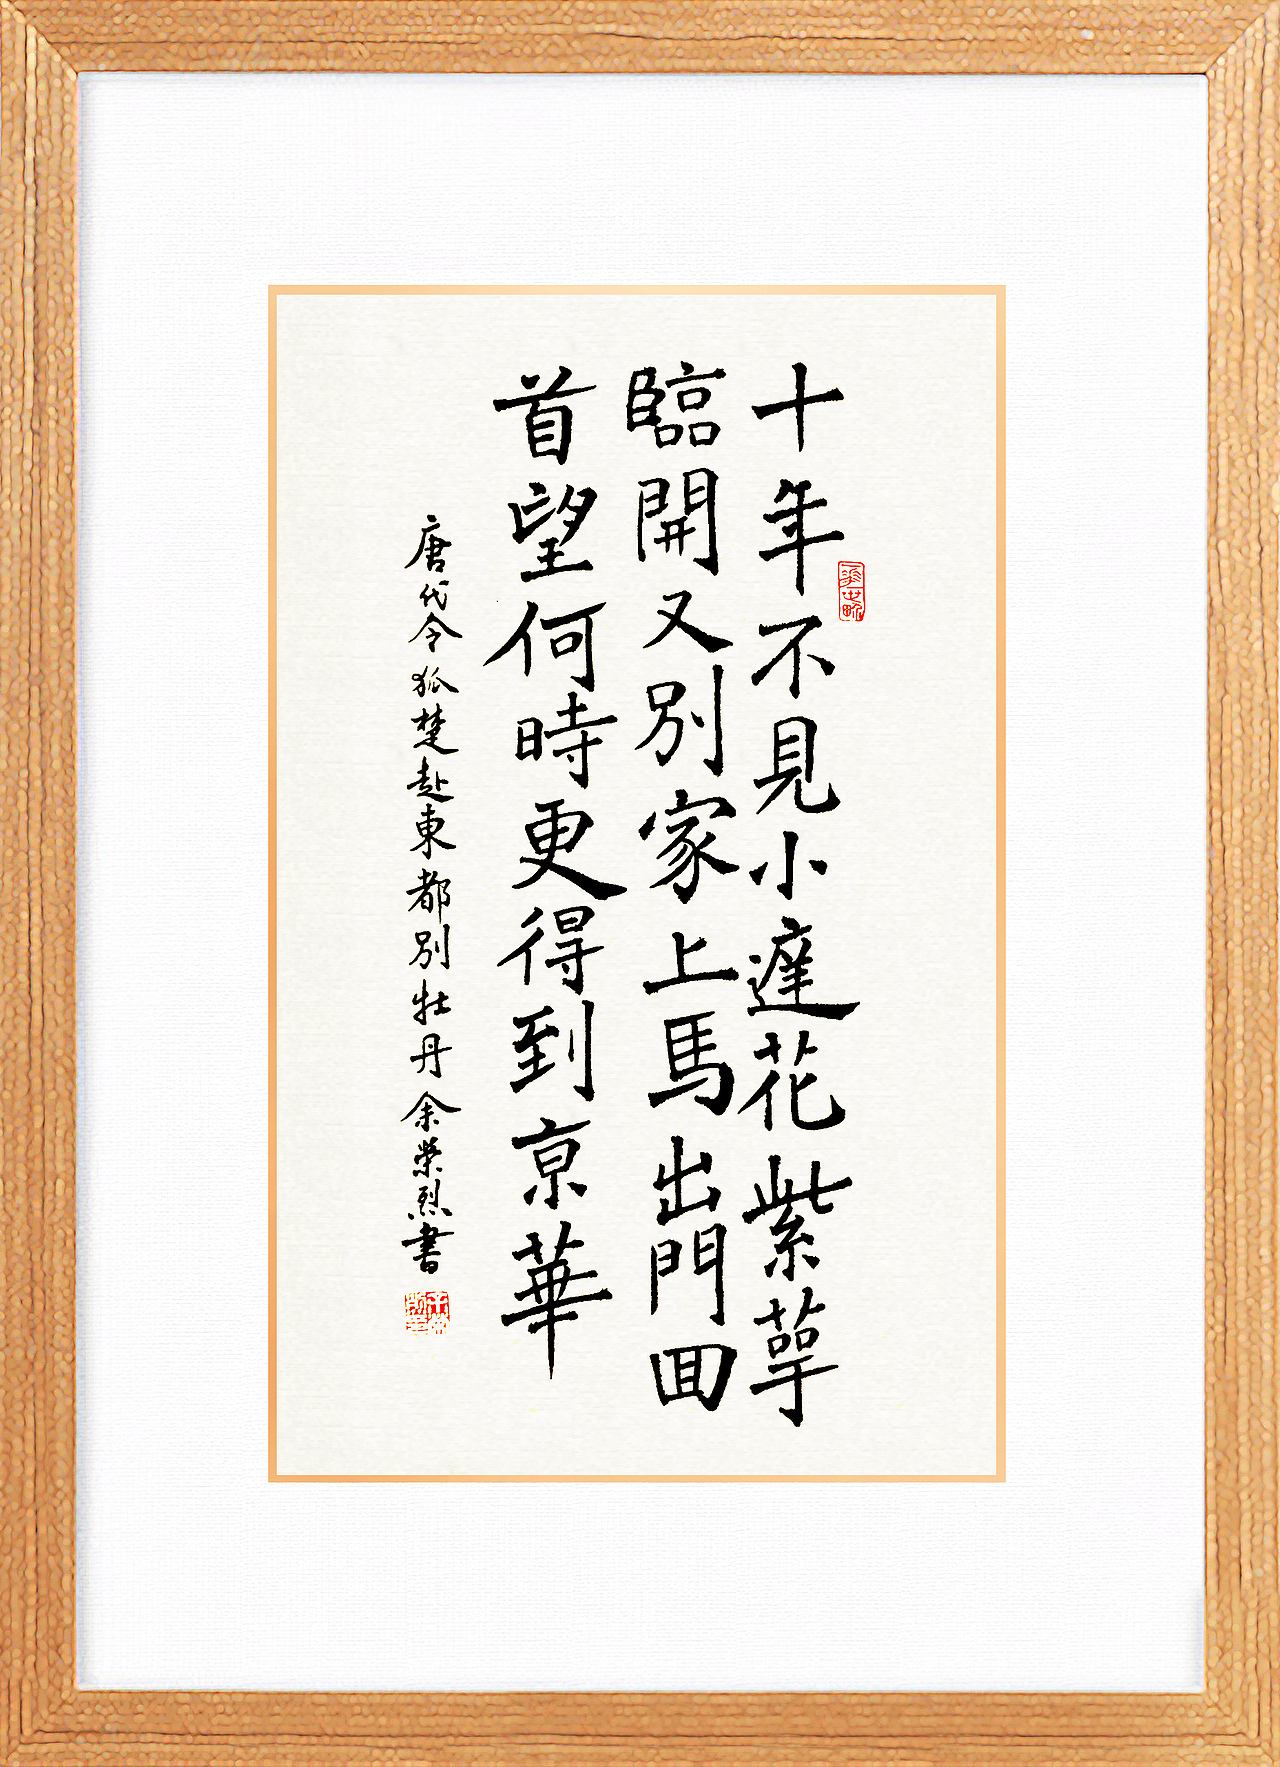 十年不見小庭花紫萼
臨開又別家上馬出門囬
首望何時更得到亰華
唐代令狐楚赴東都別牡丹余榮烈書